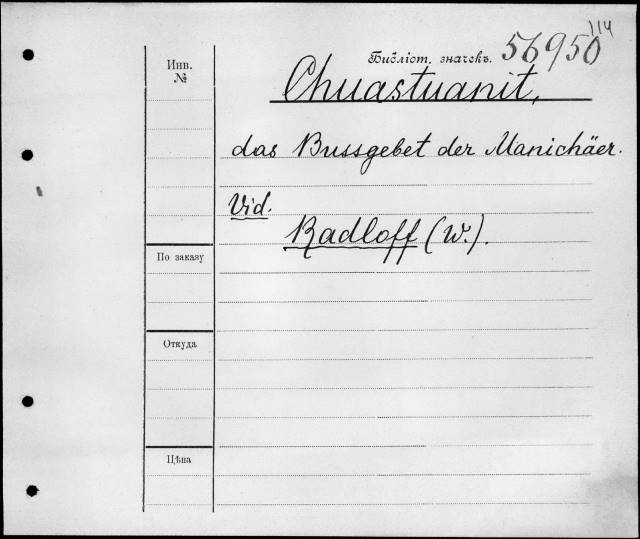 114
Библіот. значекъ. 56950
Инв.
№
Chuastuanit,
das Bussgebet der Manichäer.
Vid.
Radloff (W.).
По заказу
Откуда
Цѣна